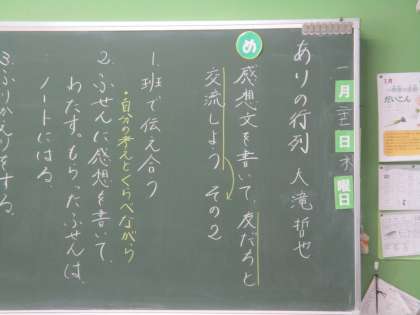 一月二十三日木曜日
ありの行列 大滝哲也
め
感想文を書いて、友だちと
交流しよう その2
1.班で伝え合う
・自分の考えとくらべながら
2.ふせんに感想を書いて、
わたす。もらったふせんは、
ノートにはる。
3.ふりかえりをする。
だいこん